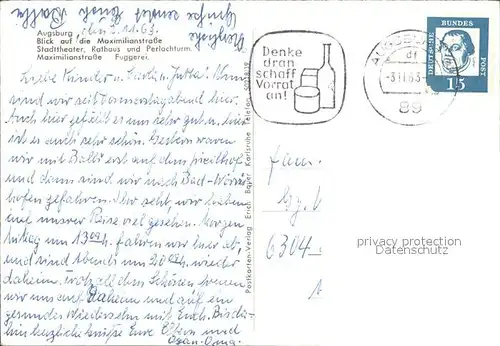 Herzliche
Grüße sendet Euch Balli
Augsburg, den 3.11.63.
Blick auf die Maximilianstraße
Stadttheater, Rathaus und Perlachturm,
Maximilianstraße Fuggerei.
Liebe Kinder u.
sind wir seit Donnerstagabend hier.
Auch hier gefällt es uns sehr gut u. hier
ist es auch sehr schön. Gestern waren
wir mit Balli erst auf dem Friedhof
und dann sind wir nach Bad-Wöris-
hofen gefahren. Ihr seht, wir haben
auf unserer Reise viel gesehen. Morgen
Mittag um 13 Uhr fahren wir hier ab,
und sind Abends um 20 Uhr wieder
daheim. Trotz all dem Schönen freuen
wir uns auf Daheim und auf ein
gesundes Wiedersehn mit Euch. Bis da-
hin herzliche Grüße Eure Eltern und
Opa-Oma.
Postkarten-Verlag Erich Bayer Karlsruhe Telefon
Denke
dran
schaff
Vorrat
an!
AUGSBURG
-3.11.63
89
DEUTSCHE BUNDES POST
15
Fam.
6304
privacy protection
Datenschutz